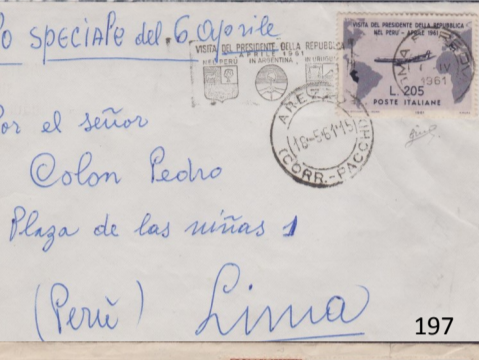 SPECIALE del 6 Aprile
VISITA DEL PRESIDENTE DELLA REPUBBLICA
APRILE 1961
NEL PERÙ IN ARGENTINA IN URUGUAY
VISITA DEL PRESIDENTE DELLA REPUBBLICA
NEL PERÙ - APRILE 1961
ROMA
IV
1961
L. 205
POSTE ITALIANE
1961
AREZZO
18-5-61-19
(CORR.-PACCHI)
Por el señor
Colon Pedro
Plaza de las niñas 1
(Perù) Lima
197